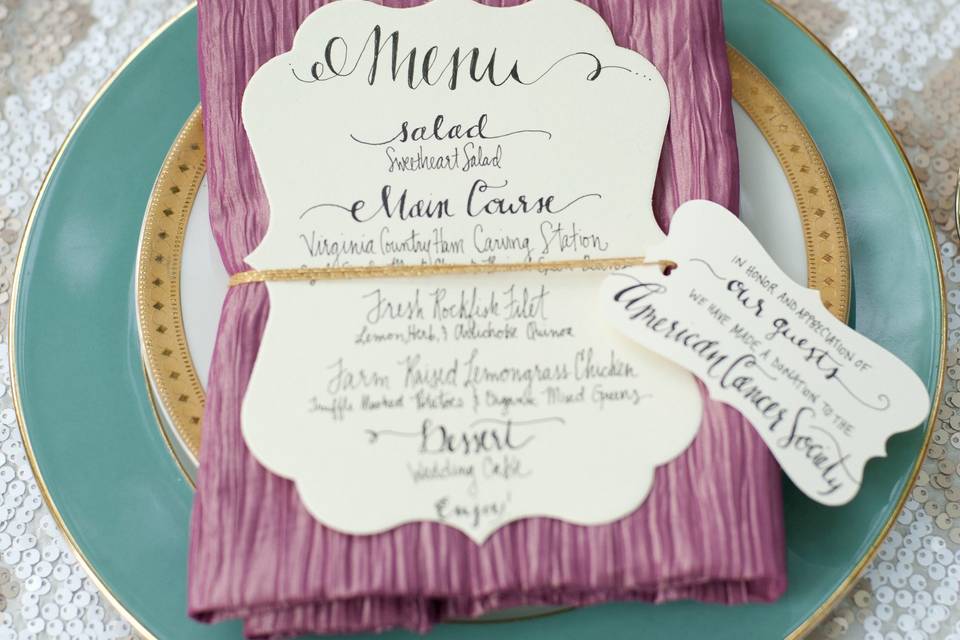 Menu
salad
Sweetheart Salad
Main Course
Virginia Country Ham Carving Station
Fresh Rockfish Filet
Lemon Herb, & Artichoke Quinoa
Farm Raised Lemongrass Chicken
Truffle Mashed Potatoes & Organic Mixed Greens
Dessert
Wedding Cake
Enjoy!
IN HONOR AND APPRECIATION OF
our guests
WE HAVE MADE A DONATION TO THE
American Cancer Society